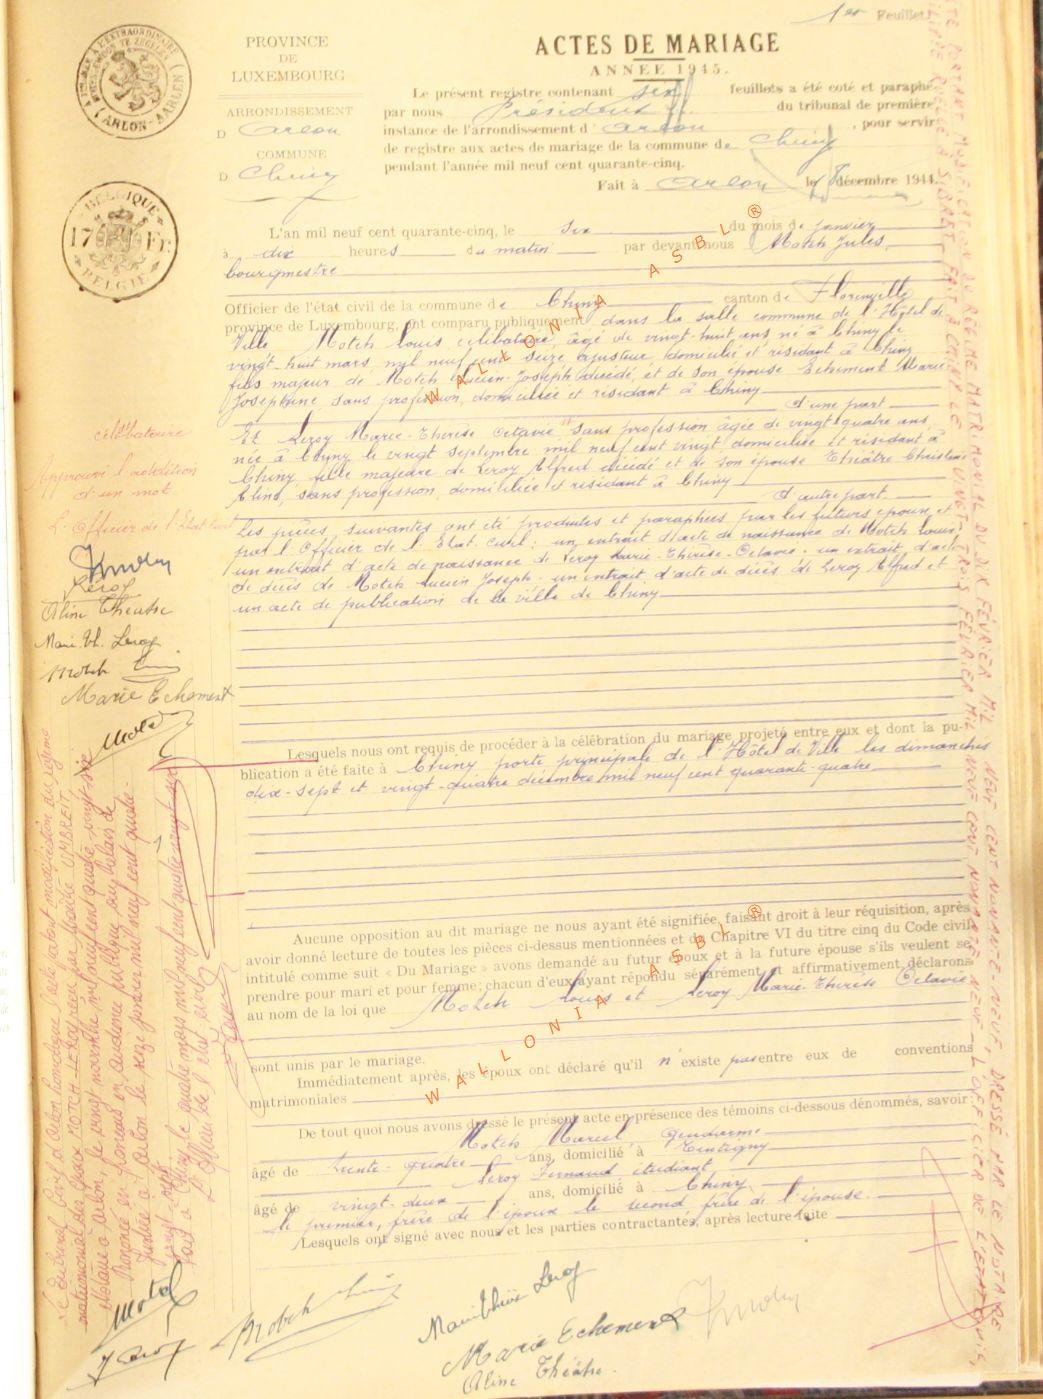 1er Feuillet.
PROVINCE
DE
LUXEMBOURG
ARRONDISSEMENT
D Arlon
COMMUNE
D Chiny
ARLON - AARLEN
BELGIQUE
17 Fr.
BELGIE
ACTES DE MARIAGE
ANNÉE 1945.
Le présent registre contenant six feuillets a été coté et paraphé
par nous Président du tribunal de première
instance de l'arrondissement d'Arlon, pour servir
de registre aux actes de mariage de la commune de Chiny
pendant l'année mil neuf cent quarante-cinq.
Fait à Arlon le 8 décembre 1944.
L'an mil neuf cent quarante-cinq, le six du mois de janvier
à dix heures du matin par devant nous Motch Jules,
bourgmestre
Officier de l'état civil de la commune de Chiny canton de Florenville
province de Luxembourg, ont comparu publiquement dans la salle commune de l'Hôtel de
Ville Motch Louis célibataire, âgé de vingt-huit ans né à Chiny le
vingt-huit mars, mil neuf cent seize ajusteur, domicilié et résidant à Chiny
fils majeur de Motch Lucien-Joseph décédé, et de son épouse Echement Marie-
Joséphine, sans profession, domiciliée et résidant à Chiny
d'une part
Et Leroy Marie-Thérèse Octavie sans profession âgée de vingt quatre ans,
née à Chiny le vingt septembre mil neuf cent vingt domiciliée et résidant à
Chiny, fille majeure de Leroy Alfred décédé et de son épouse Théâtre Christine
Aline, sans profession, domiciliée et résidant à Chiny
d'autre part.
Les pièces suivantes ont été produites et paraphées par les futurs époux et
par l'Officier de l'Etat civil: un extrait d'acte de naissance de Motch Louis,
un extrait d'acte de naissance de Leroy Marie-Thérèse-Octavie - un extrait d'acte
de décès de Motch Lucien Joseph - un extrait d'acte de décès de Leroy Alfred et
un acte de publication de la ville de Chiny
célibataire
Approuvé l'addition
d'un mot.
L'Officier de l'Etat Civil
Leroy
Aline Théâtre
Marie Th. Leroy
Motch
Marie Echement
Motch
Lesquels nous ont requis de procéder à la célébration du mariage projeté entre eux et dont la pu-
blication a été faite à Chiny porte principale de l'Hôtel de Ville les dimanches
dix-sept et vingt-quatre décembre mil neuf cent quarante-quatre
Aucune opposition au dit mariage ne nous ayant été signifiée, faisant droit à leur réquisition, après
avoir donné lecture de toutes les pièces ci-dessus mentionnées et du Chapitre VI du titre cinq du Code civil
intitulé comme suit « Du Mariage » avons demandé au futur époux et à la future épouse s'ils veulent se
prendre pour mari et pour femme; chacun d'eux ayant répondu séparément et affirmativement, déclarons
au nom de la loi que Motch Louis et Leroy Marie-Thérèse Octavie
sont unis par le mariage.
Immédiatement après, les époux ont déclaré qu'il n'existe pas entre eux de conventions
matrimoniales
De tout quoi nous avons dressé le présent acte en présence des témoins ci-dessous dénommés, savoir
Motch Marcel, gendarme
âgé de trente-quatre ans, domicilié à Tintigny
Leroy Fernand étudiant
âgé de vingt-deux ans, domicilié à Chiny
le premier, frère de l'époux le second frère de l'épouse.
Lesquels ont signé avec nous et les parties contractantes, après lecture faite
Motch
Leroy
Motch
Marie Thérèse Leroy
Marie Echement
Aline Théâtre.
Le tribunal civil d'Arlon homologue l'acte portant modification au régime
matrimonial des époux MOTCH-LEROY reçu par Maître
Notaire à Arlon, le vingt novembre mil neuf cent quatre vingt-six
Prononcé en français en audience publique au palais de
Justice à Arlon le seize janvier mil neuf cent quatre-
vingt-sept
Fait à Chiny le quatre mars mil neuf cent quatre vingt sept
L'officier de l'état civil
ACTE PORTANT MODIFICATION DU RÉGIME MATRIMONIAL DU DIX FÉVRIER MIL NEUF CENT NONANTE-NEUF, DRESSÉ PAR LE NOTAIRE
FAIT À CHINY LE VINGT-TROIS FÉVRIER MIL NEUF CENT NONANTE-NEUF - L'OFFICIER DE L'ETAT CIVIL,
WALLONIA ASBL ®
WALLONIA ASBL ®